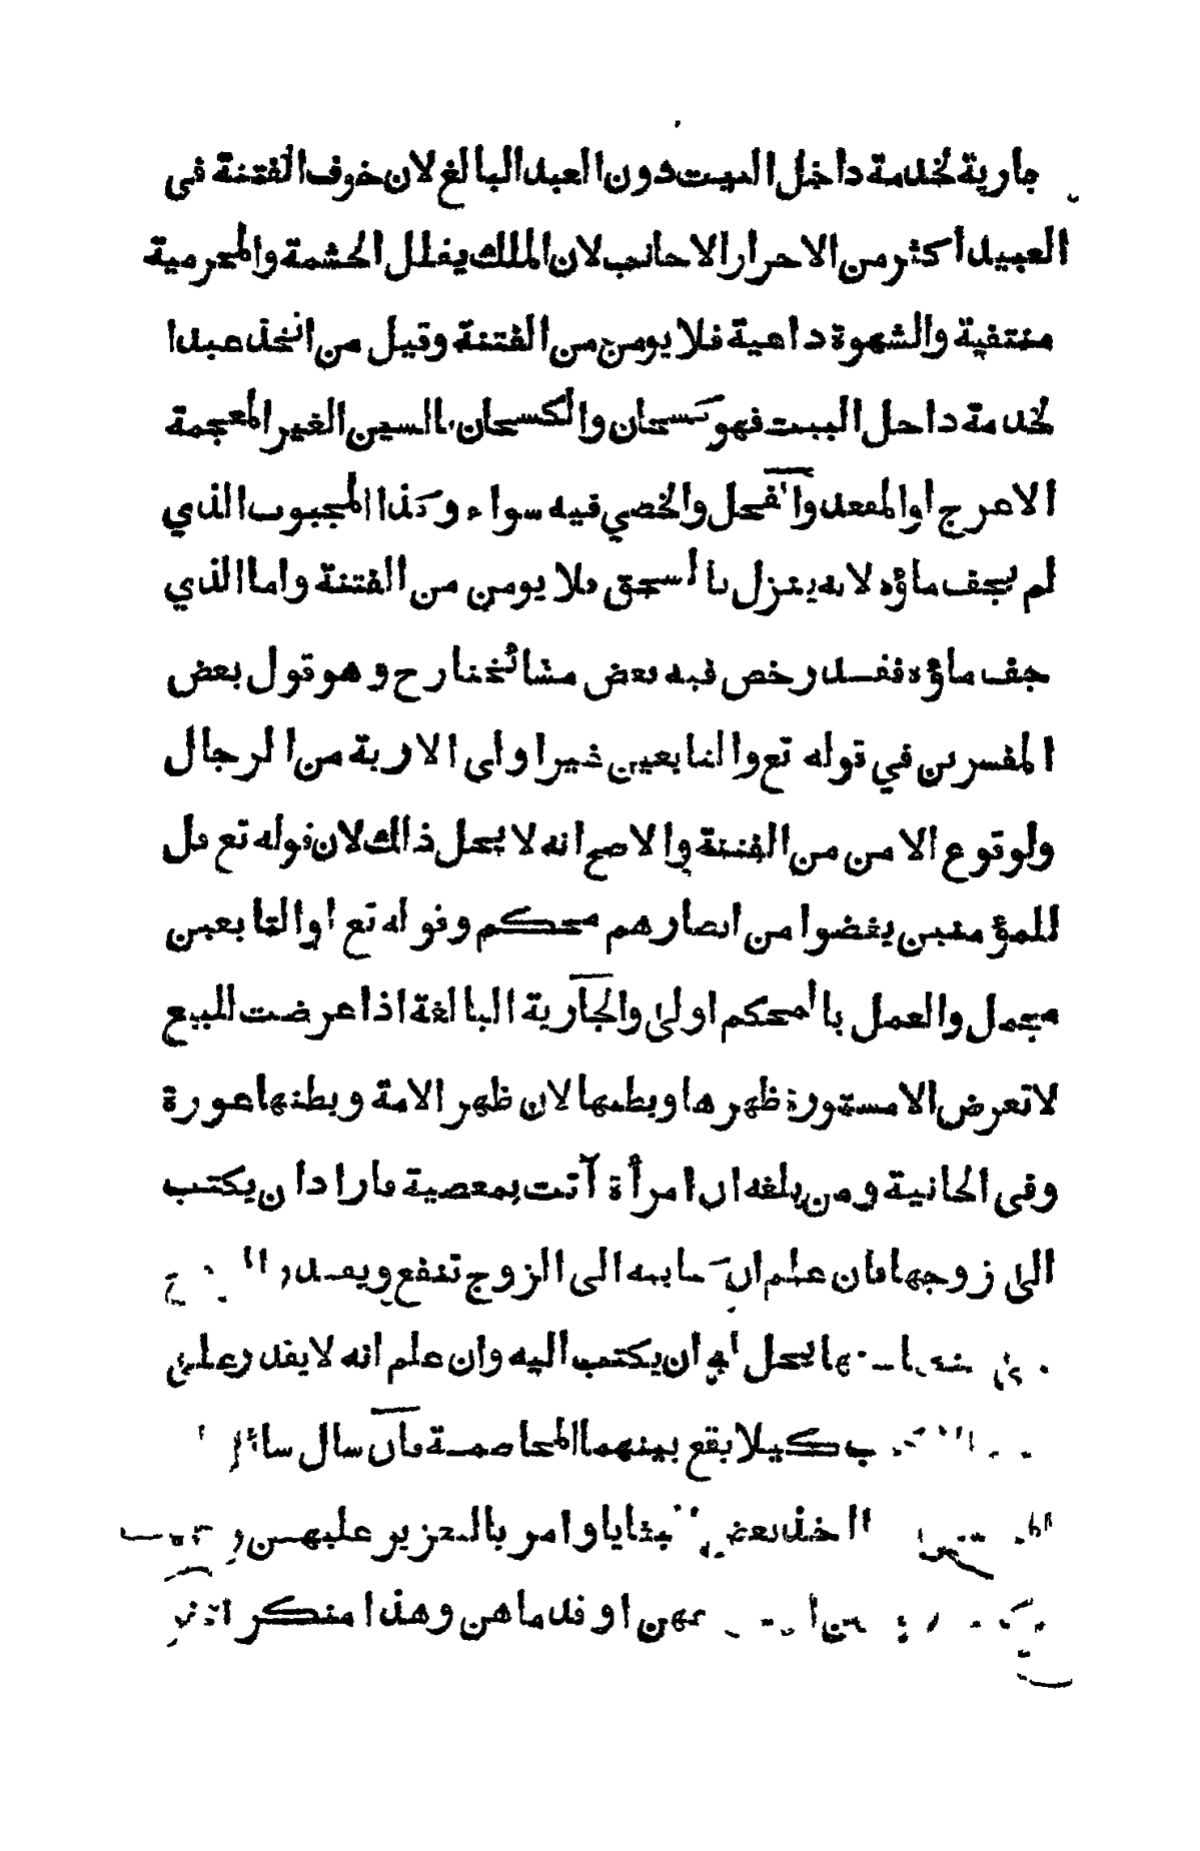 جارية لخدمة داخل البيت دون العبد البالغ لان خوف الفتنة فى
العبيد أكثر من الاحرار الاجانب لان الملك يقلل الحشمة والمحرمية
منتفية والشهوة داعية فلا يومن من الفتنة وقيل من اتخذ عبدا
لخدمة داخل البيت فهو كسحان والكسحان بالسين الغير المعجمة
الاعرج او المقعد والفحل والخصي فيه سواء وكذا المجبوب الذي
لم يجف ماؤه لانه ينزل بالسحق فلا يومن من الفتنة واما الذي
جف ماؤه فقد رخص فيه بعض مشائخنا رح وهو قول بعض
المفسرين في قوله تع والتابعين غير اولى الاربة من الرجال
ولوقوع الامن من الفتنة والاصح انه لا يحل ذالك لان قوله تع قل
للمؤمنين يغضوا من ابصارهم محكم وقوله تع اوالتابعين
مجمل والعمل بالمحكم اولىٰ والجارية البالغة اذا عرضت للبيع
لا تعرض الا مستورة ظهرها وبطنها لان ظهر الامة وبطنها عورة
وفى الخانية ومن بلغه ان امرأة آتت بمعصية فاراد ان يكتب
الىٰ زوجها فان علم ان كتابه الى الزوج تنفع ويقدر
يحل له ان يكتب اليه وان علم انه لا يقدر علىٰ
كيلا يقع بينهما المخاصمة فان سال سائل
بغايا وامر بالتعزير عليهن
او قدماهن وهذا منكر